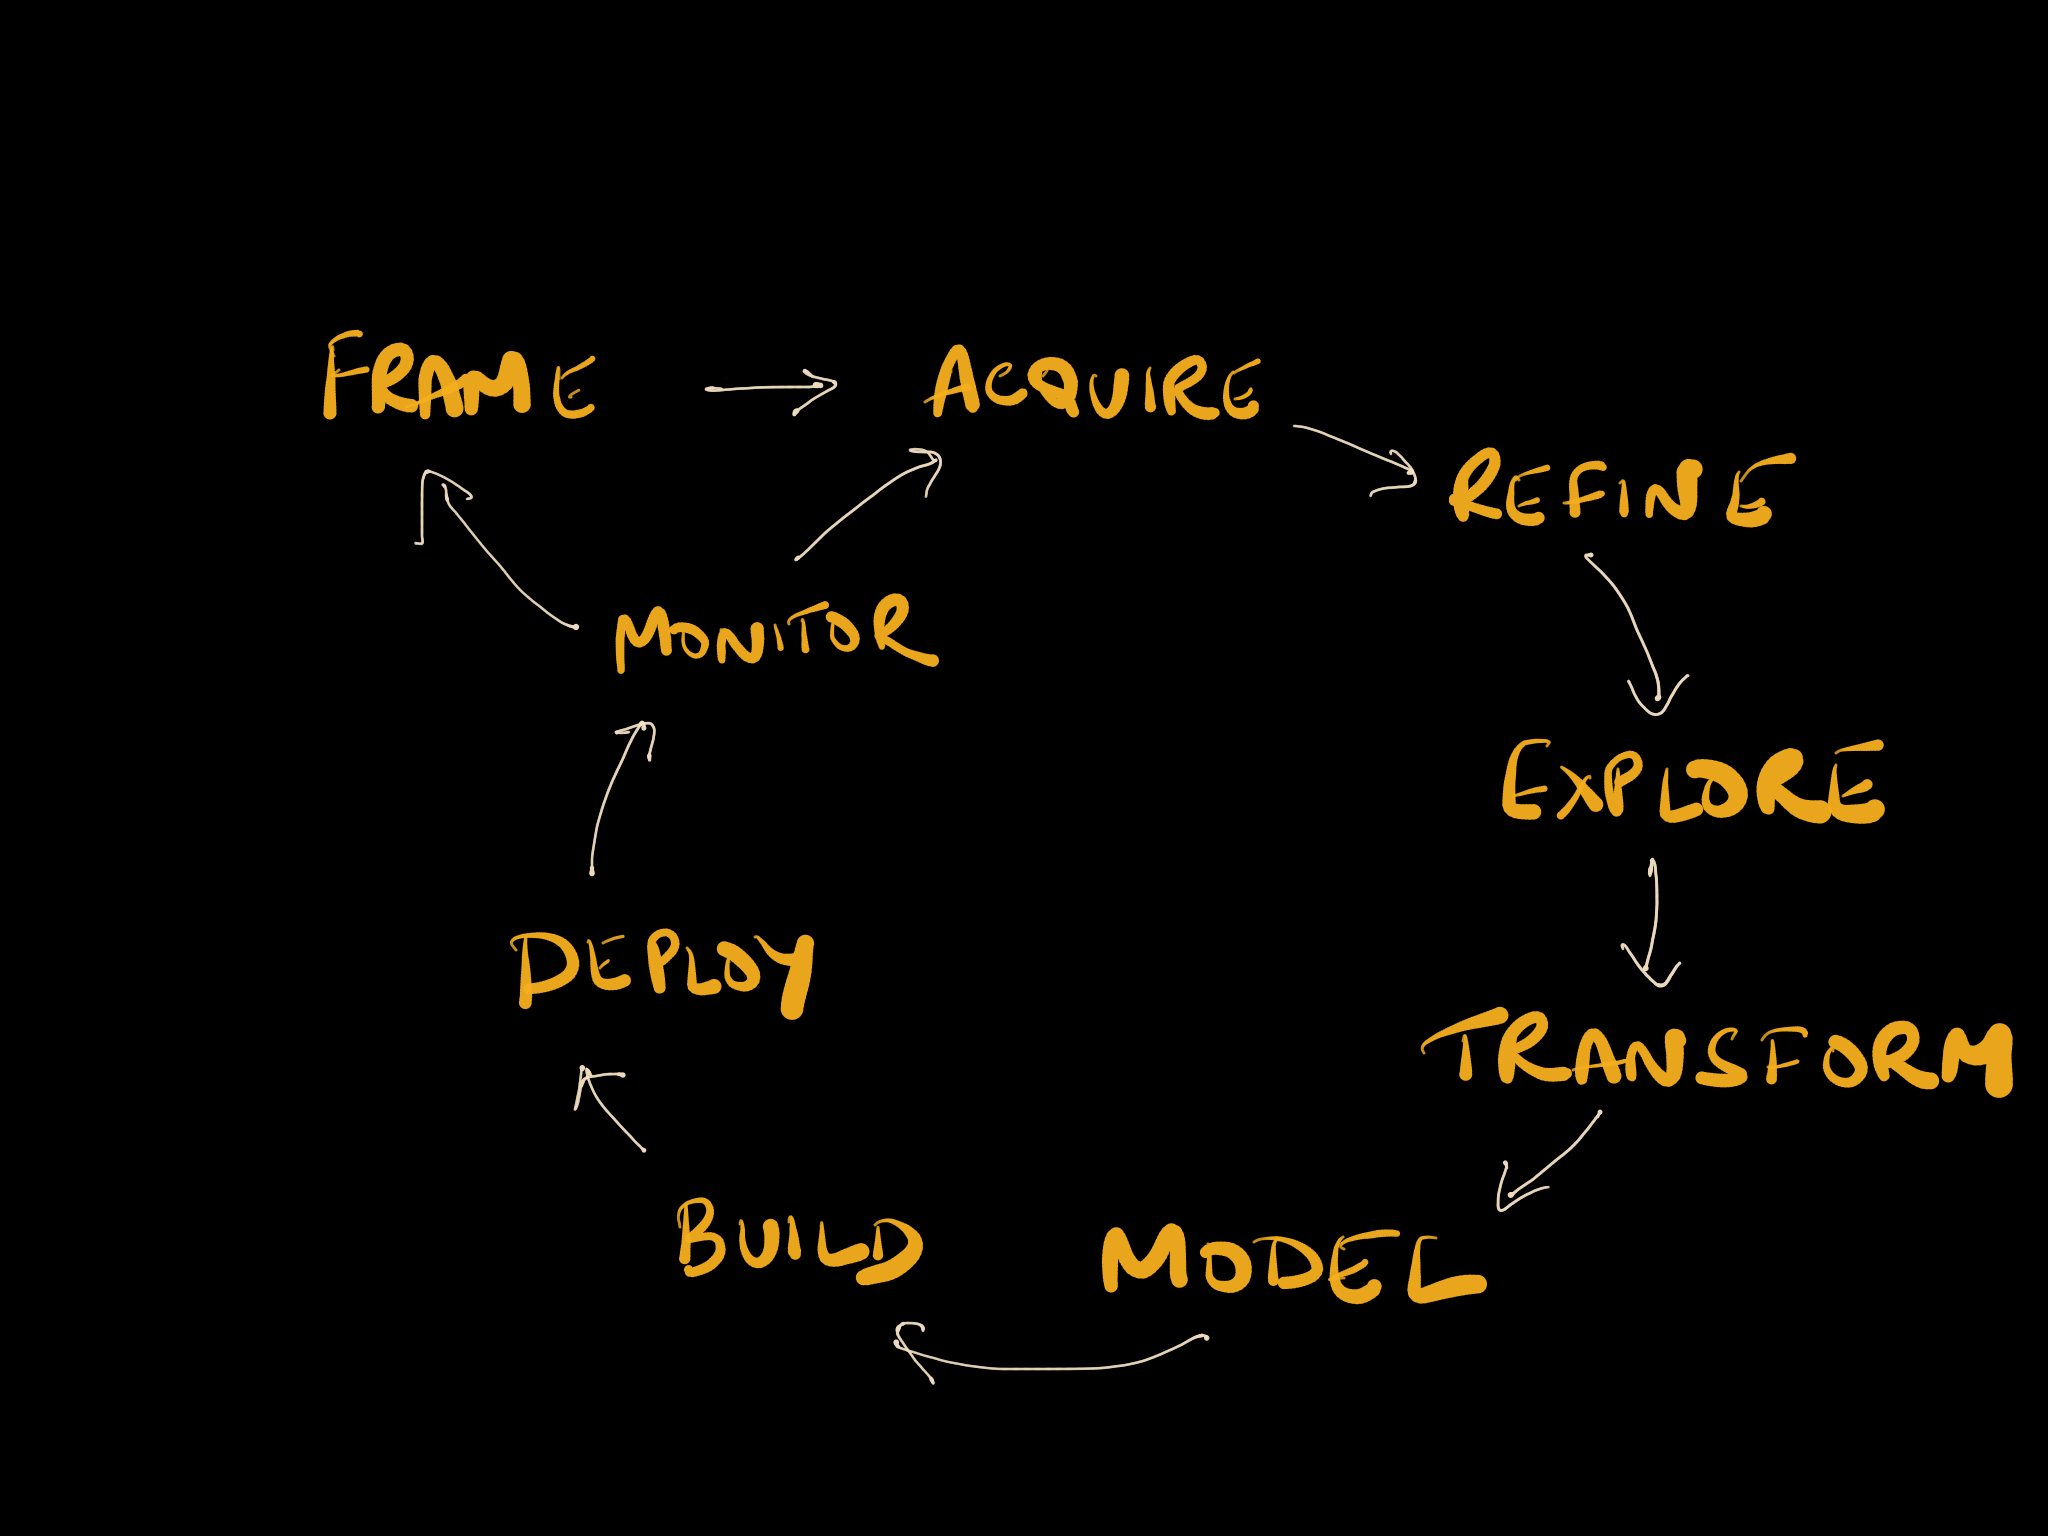 FRAME
ACQUIRE
REFINE
EXPLORE
TRANSFORM
MODEL
BUILD
DEPLOY
MONITOR